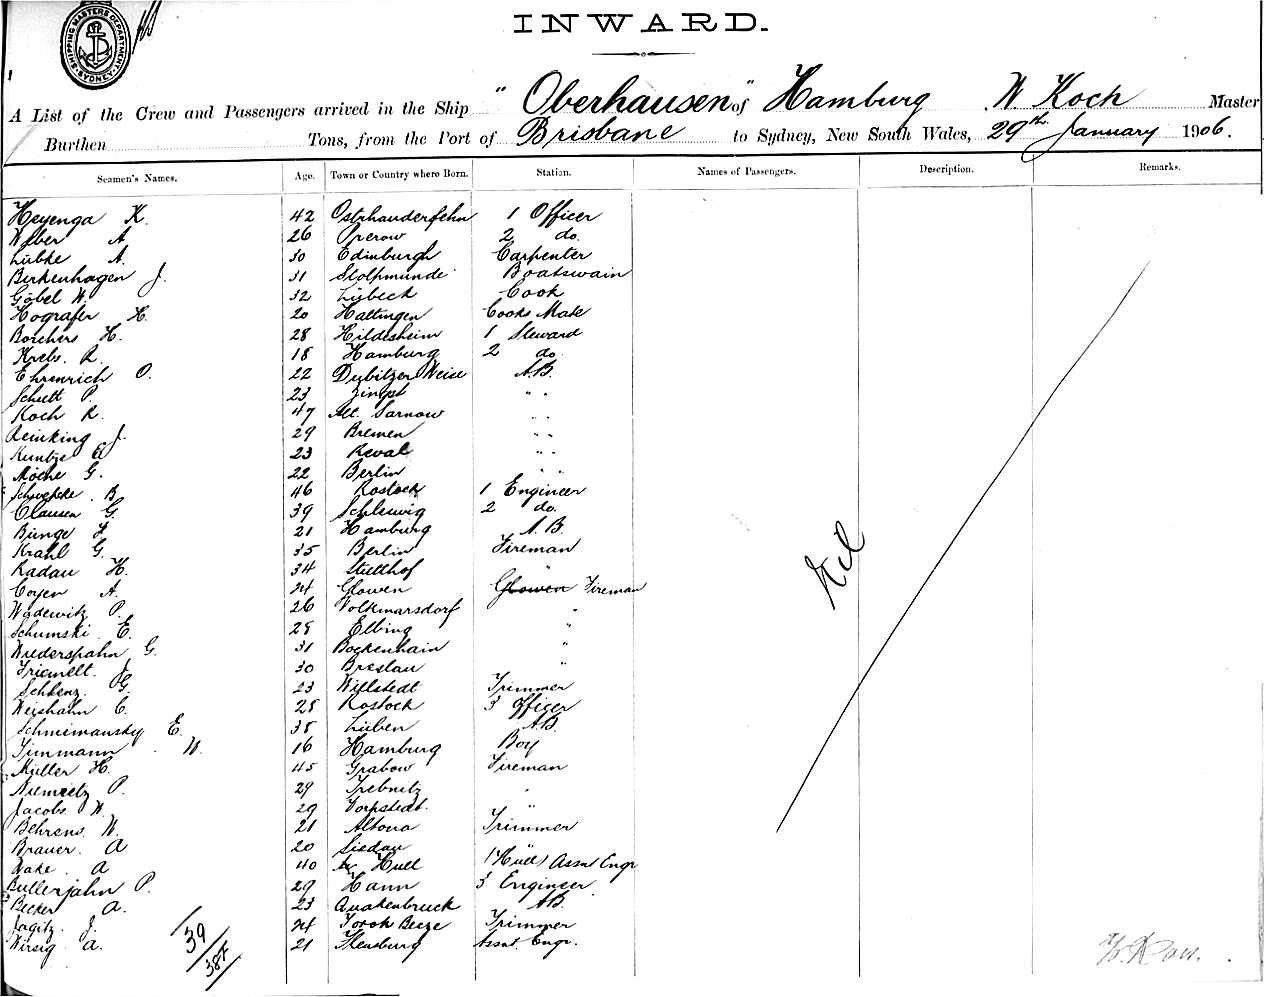 SHIPPING MASTERS DEPARTMENT SYDNEY
INWARD.
A List of the Crew and Passengers arrived in the Ship "Oberhausen" of Hamburg W Koch Master
Burthen Tons, from the Port of Brisbane to Sydney, New South Wales, 29th January 1906.
Seamen's Names. Age. Town or Country where Born. Station. Names of Passengers. Description. Remarks.
Heyenga K. 42 Ostrhauderfehn 1 Officer
Weber A 26 Prerow 2 do.
Lübke A. 30 Edinburgh Carpenter
Birkenhagen J. 31 Stolpmünde Boatswain
Göbel W. 32 Lübeck Cook
Hografer H. 20 Hattingen Cooks Mate
Borchers H. 28 Hildesheim 1 Steward
Krebs. R. 18 Hamburg 2 do.
Ehrenrich O. 22 A.B.
Schutt P. 23 Zingst " "
Koch R. 47 Alt. Sarnow " "
Reinking J. 29 Bremen " "
Kuntze E 23 Reval " "
Möche G. 22 Berlin " "
Schwepcke B 46 Rostock 1 Engineer
Clausen G. 39 Schleswig 2 do.
Bünge F 21 Hamburg A.B.
Krahl G. 35 Berlin Fireman
Radau H. 34 Stutthof "
Coyen A. 24 Glowen Glowen Fireman
Wadewitz P. 26 Volkmarsdorf "
Schumski E. 28 Elbing "
Wiederspahn G. 31 Bockenhain "
Friemelt. J. 30 Breslau "
Schkenz. G. 23 Willstedt Trimmer
Weishahn C. 28 Rostock 3 Officer
Schmimansky E. 38 Lüben A.B.
Timmann W. 16 Hamburg Boy
Müller H. 45 Grabow Fireman
Niemietz P. 29 Trebnitz "
Jacobs W. 29 Vorpstedt. "
Behrens W. 21 Altona Trimmer
Brauer. A 20 "
Wake. A 40 Hull 1 Assnt Engr
Bullerjahn P. 29 Hann 3 Engineer
Becker A. 23 Quakenbruck AB
Jagitz. J. 24 Trimmer
Wirsig A. 21 Flensburg Assnt. Engr.
Nil
39/387